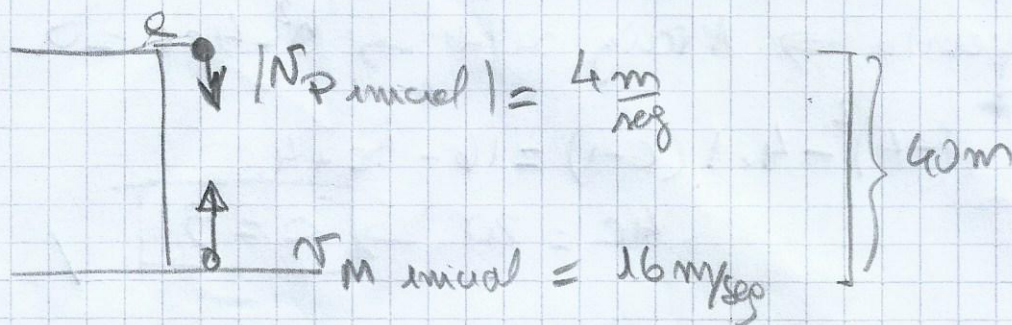 |V_P inicial| = 4 m/seg
40m
V_M inicial = 16 m/seg